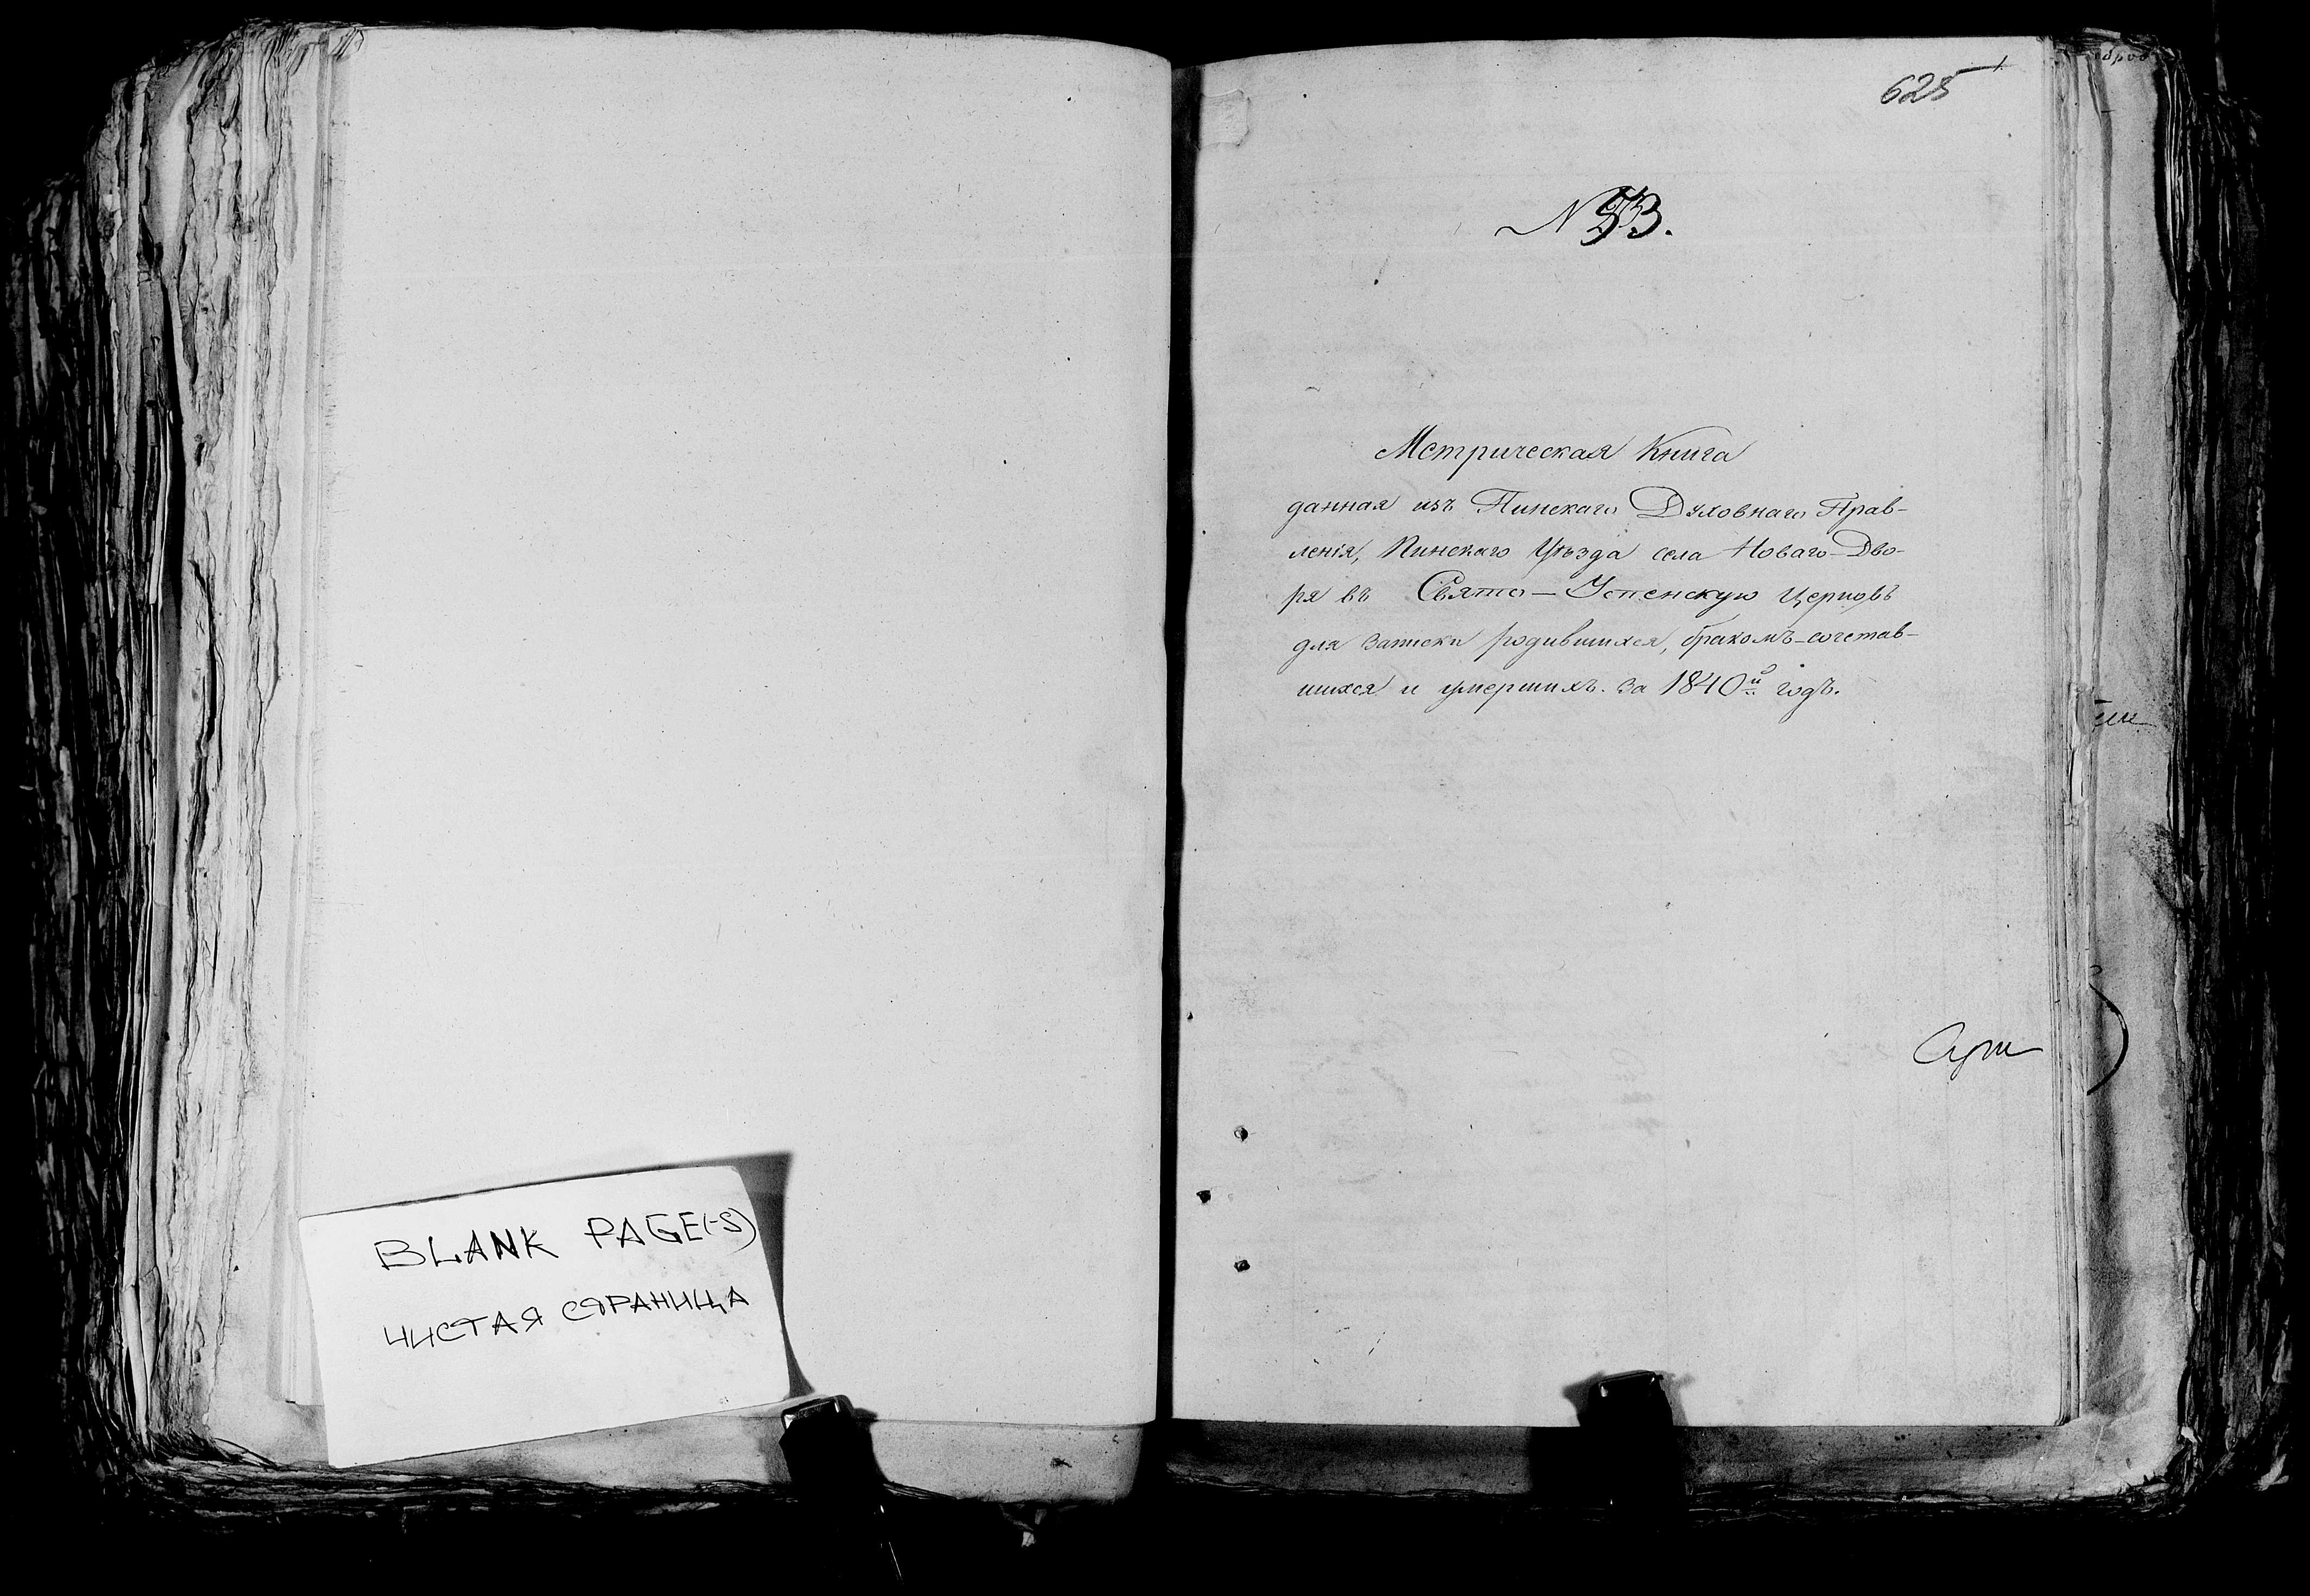 BLANK PAGE(-S)
ЧИСТАЯ СТРАНИЦА
625
N 53.
Метрическая Книга
данная изъ Пинскаго Духовнаго Прав-
ленія, Пинскаго Уѣзда села Новаго-Дво-
ра въ Свято-Успенскую Церковь
для записки родившихся, бракомъ-сочетав-
шихся и умершихъ. за 1840й годъ.